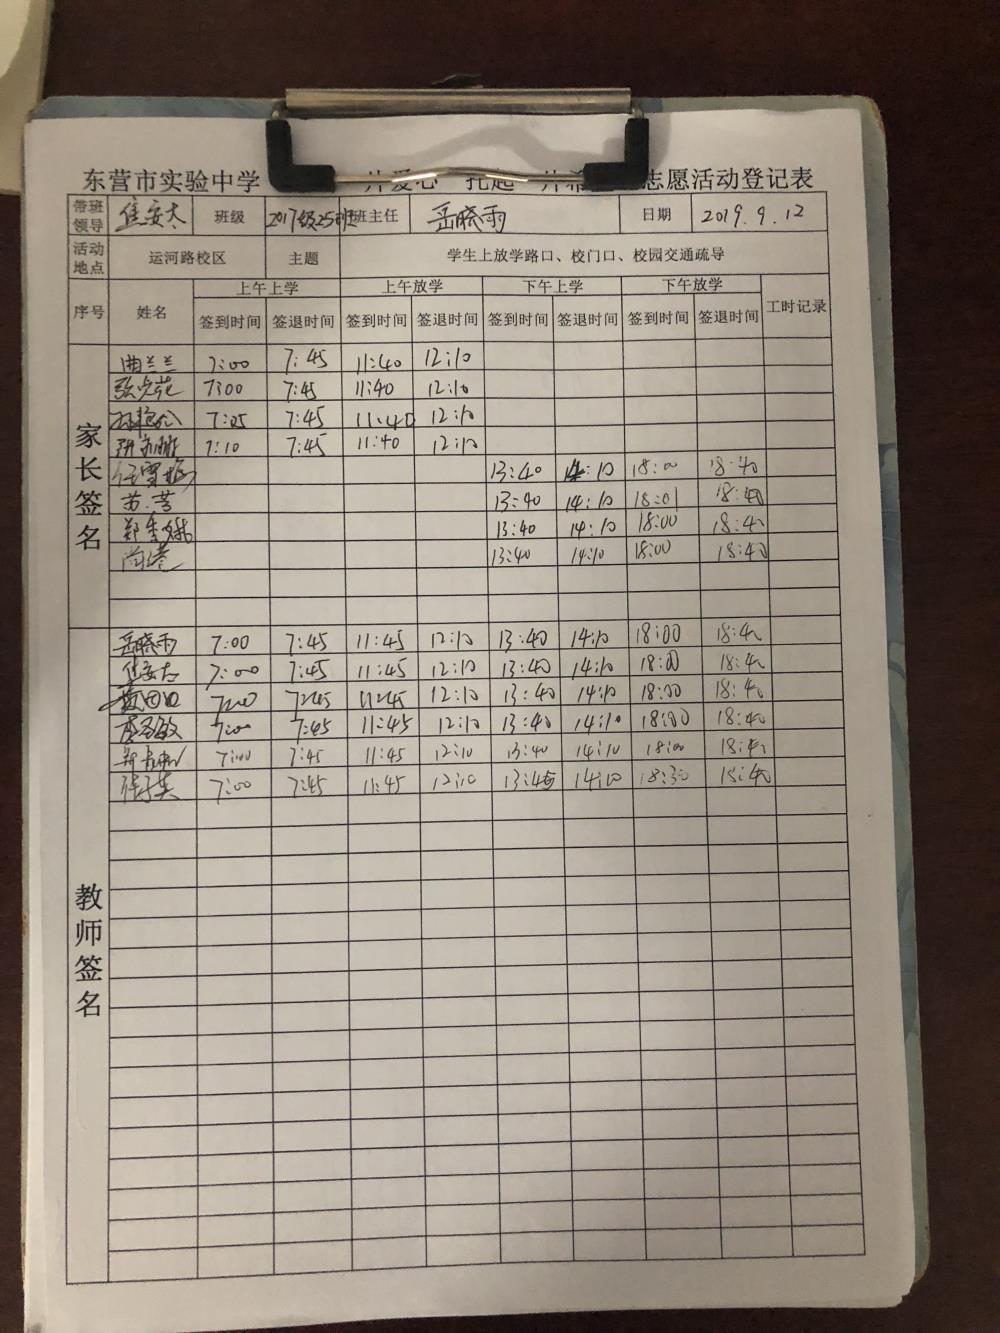 东营市实验中学 片爱心 托起 片希 志愿活动登记表
带班领导 焦安大 班级 2017级25班 班主任 岳晓雨 日期 2019.9.12
活动地点 运河路校区 主题 学生上放学路口、校门口、校园交通疏导
序号 姓名 上午上学 上午放学 下午上学 下午放学 工时记录
签到时间 签退时间 签到时间 签退时间 签到时间 签退时间 签到时间 签退时间
家长签名
曲兰兰 7:00 7:45 11:40 12:10
7:00 7:45 11:40 12:10
7:05 7:45 11:40 12:10
7:10 7:45 11:40 12:10
任雪梅 13:40 14:10 18:00 18:40
苏芳 13:40 14:10 18:01 18:40
郑秀娥 13:40 14:10 18:00 18:40
尚 13:40 14:10 18:00 18:40
教师签名
岳晓雨 7:00 7:45 11:45 12:10 13:40 14:10 18:00 18:40
焦安大 7:00 7:45 11:45 12:10 13:40 14:10 18:00 18:40
7:00 7:45 11:45 12:10 13:40 14:10 18:00 18:40
7:00 7:45 11:45 12:10 13:40 14:10 18:00 18:40
7:00 7:45 11:45 12:10 13:40 14:10 18:00 18:40
7:00 7:45 11:45 12:10 14:10 18:30 18:40